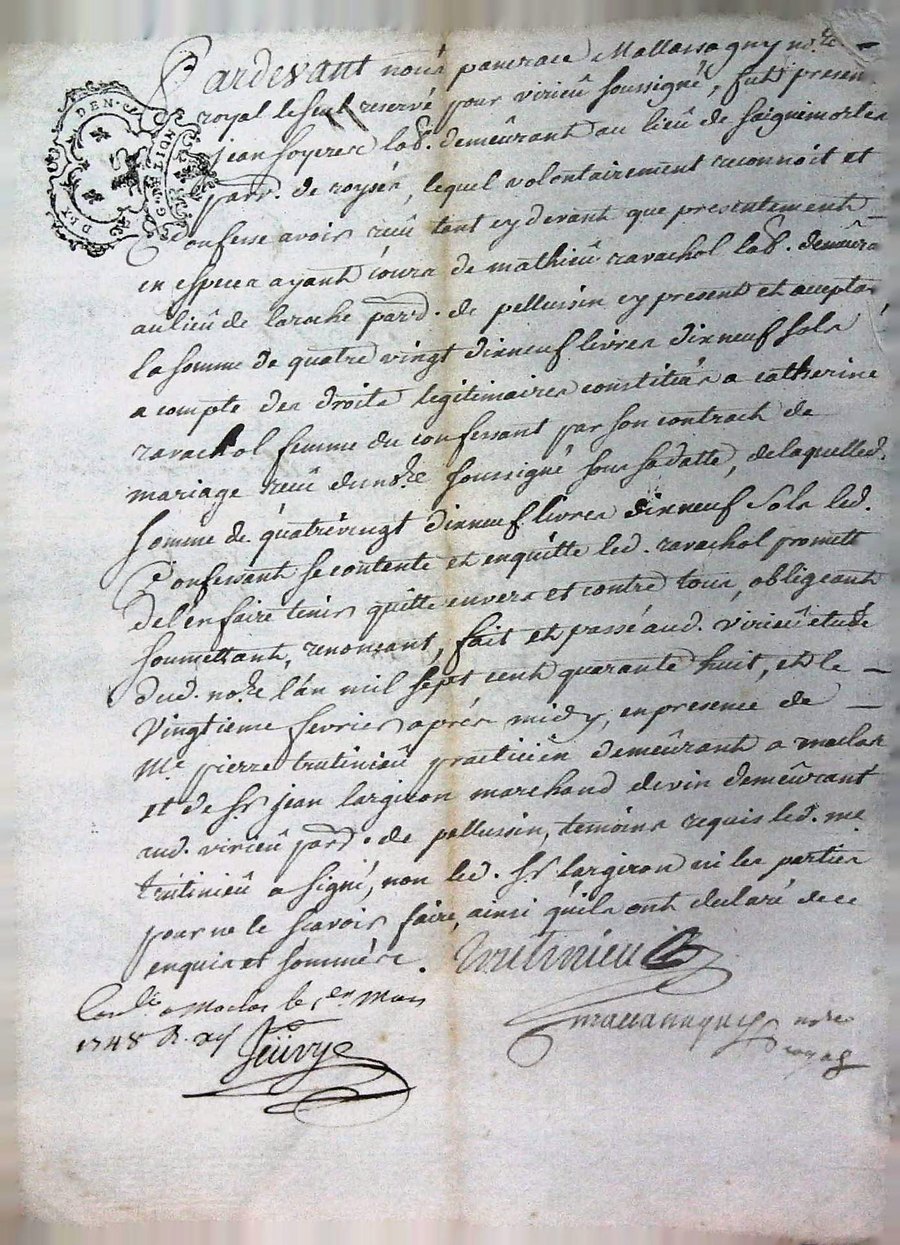 Pardevant nous pancrace Mallassagny no.re
royal le seul reservé pour virieû soussigné, fut present
jean soyere lab.r demeûrant au lieû de saignemorte
parr. de roysey, lequel volontairement reconnoit et
Confesse avoir reçû tant cy devant que presentement
en especes ayant cours de mathieû ravachol lab.r demeûra
au lieû de laroche parr. de pellussin cy present et accepta
la somme de quatre vingt dixneuf livres dixneuf sols
a compte des droits legitimaires constitués a catherine
ravachol femme du confessant par son contrach de
mariage reçû du no.re soussigné sous sa datte, de laquelle d.
somme de quatrevingt dixneuf livres dixneuf sols led.
Confessant se contente et enquitte led. ravachol promett
de l'en faire tenir quitte envers et contre tous, obligeant
soumettant, renonsant, fait et passé aud. virieû etude
dud. no.re l'an mil sept cent quarante huit, et le
Vingtieme fevrier après midy, en presence de
M.e pierre trutinieû practicien demeûrant a maclas
et de s.r jean largiron marchand de vin demeûrant
aud. virieû parr. de pellussin, temoins requis led. me
trutinieû a signé, non led. s.r largiron ni les parties
pour ne le scavoir faire, ainsi qu'ils ont declaré de ce
enquis et sommés.
Trutinieu
Con.lé a Maclas le 1.er Mars
1748 R.
mallassagny no.re
royal